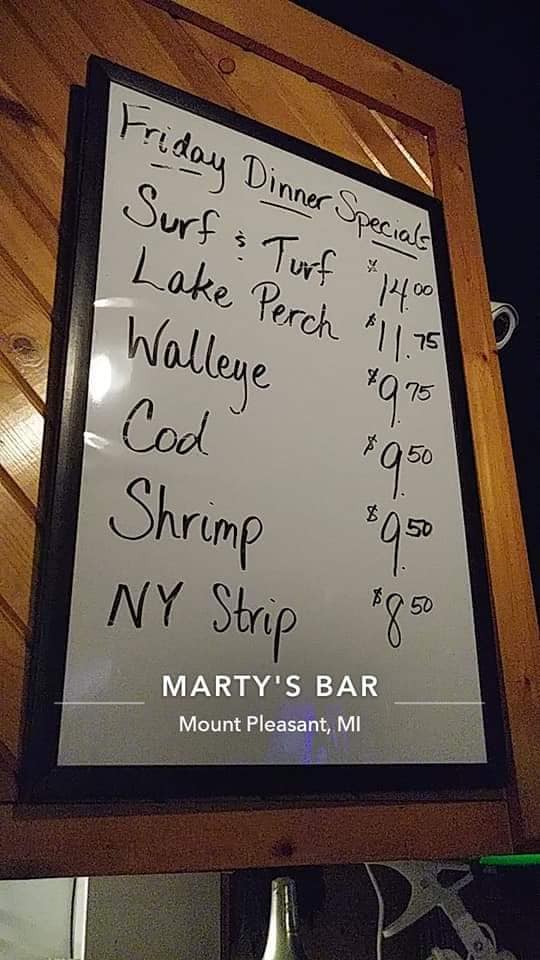 Friday Dinner Specials
Surf & Turf $14.00
Lake Perch $11.75
Walleye $9.75
Cod $9.50
Shrimp $9.50
NY Strip $8.50
MARTY'S BAR
Mount Pleasant, MI